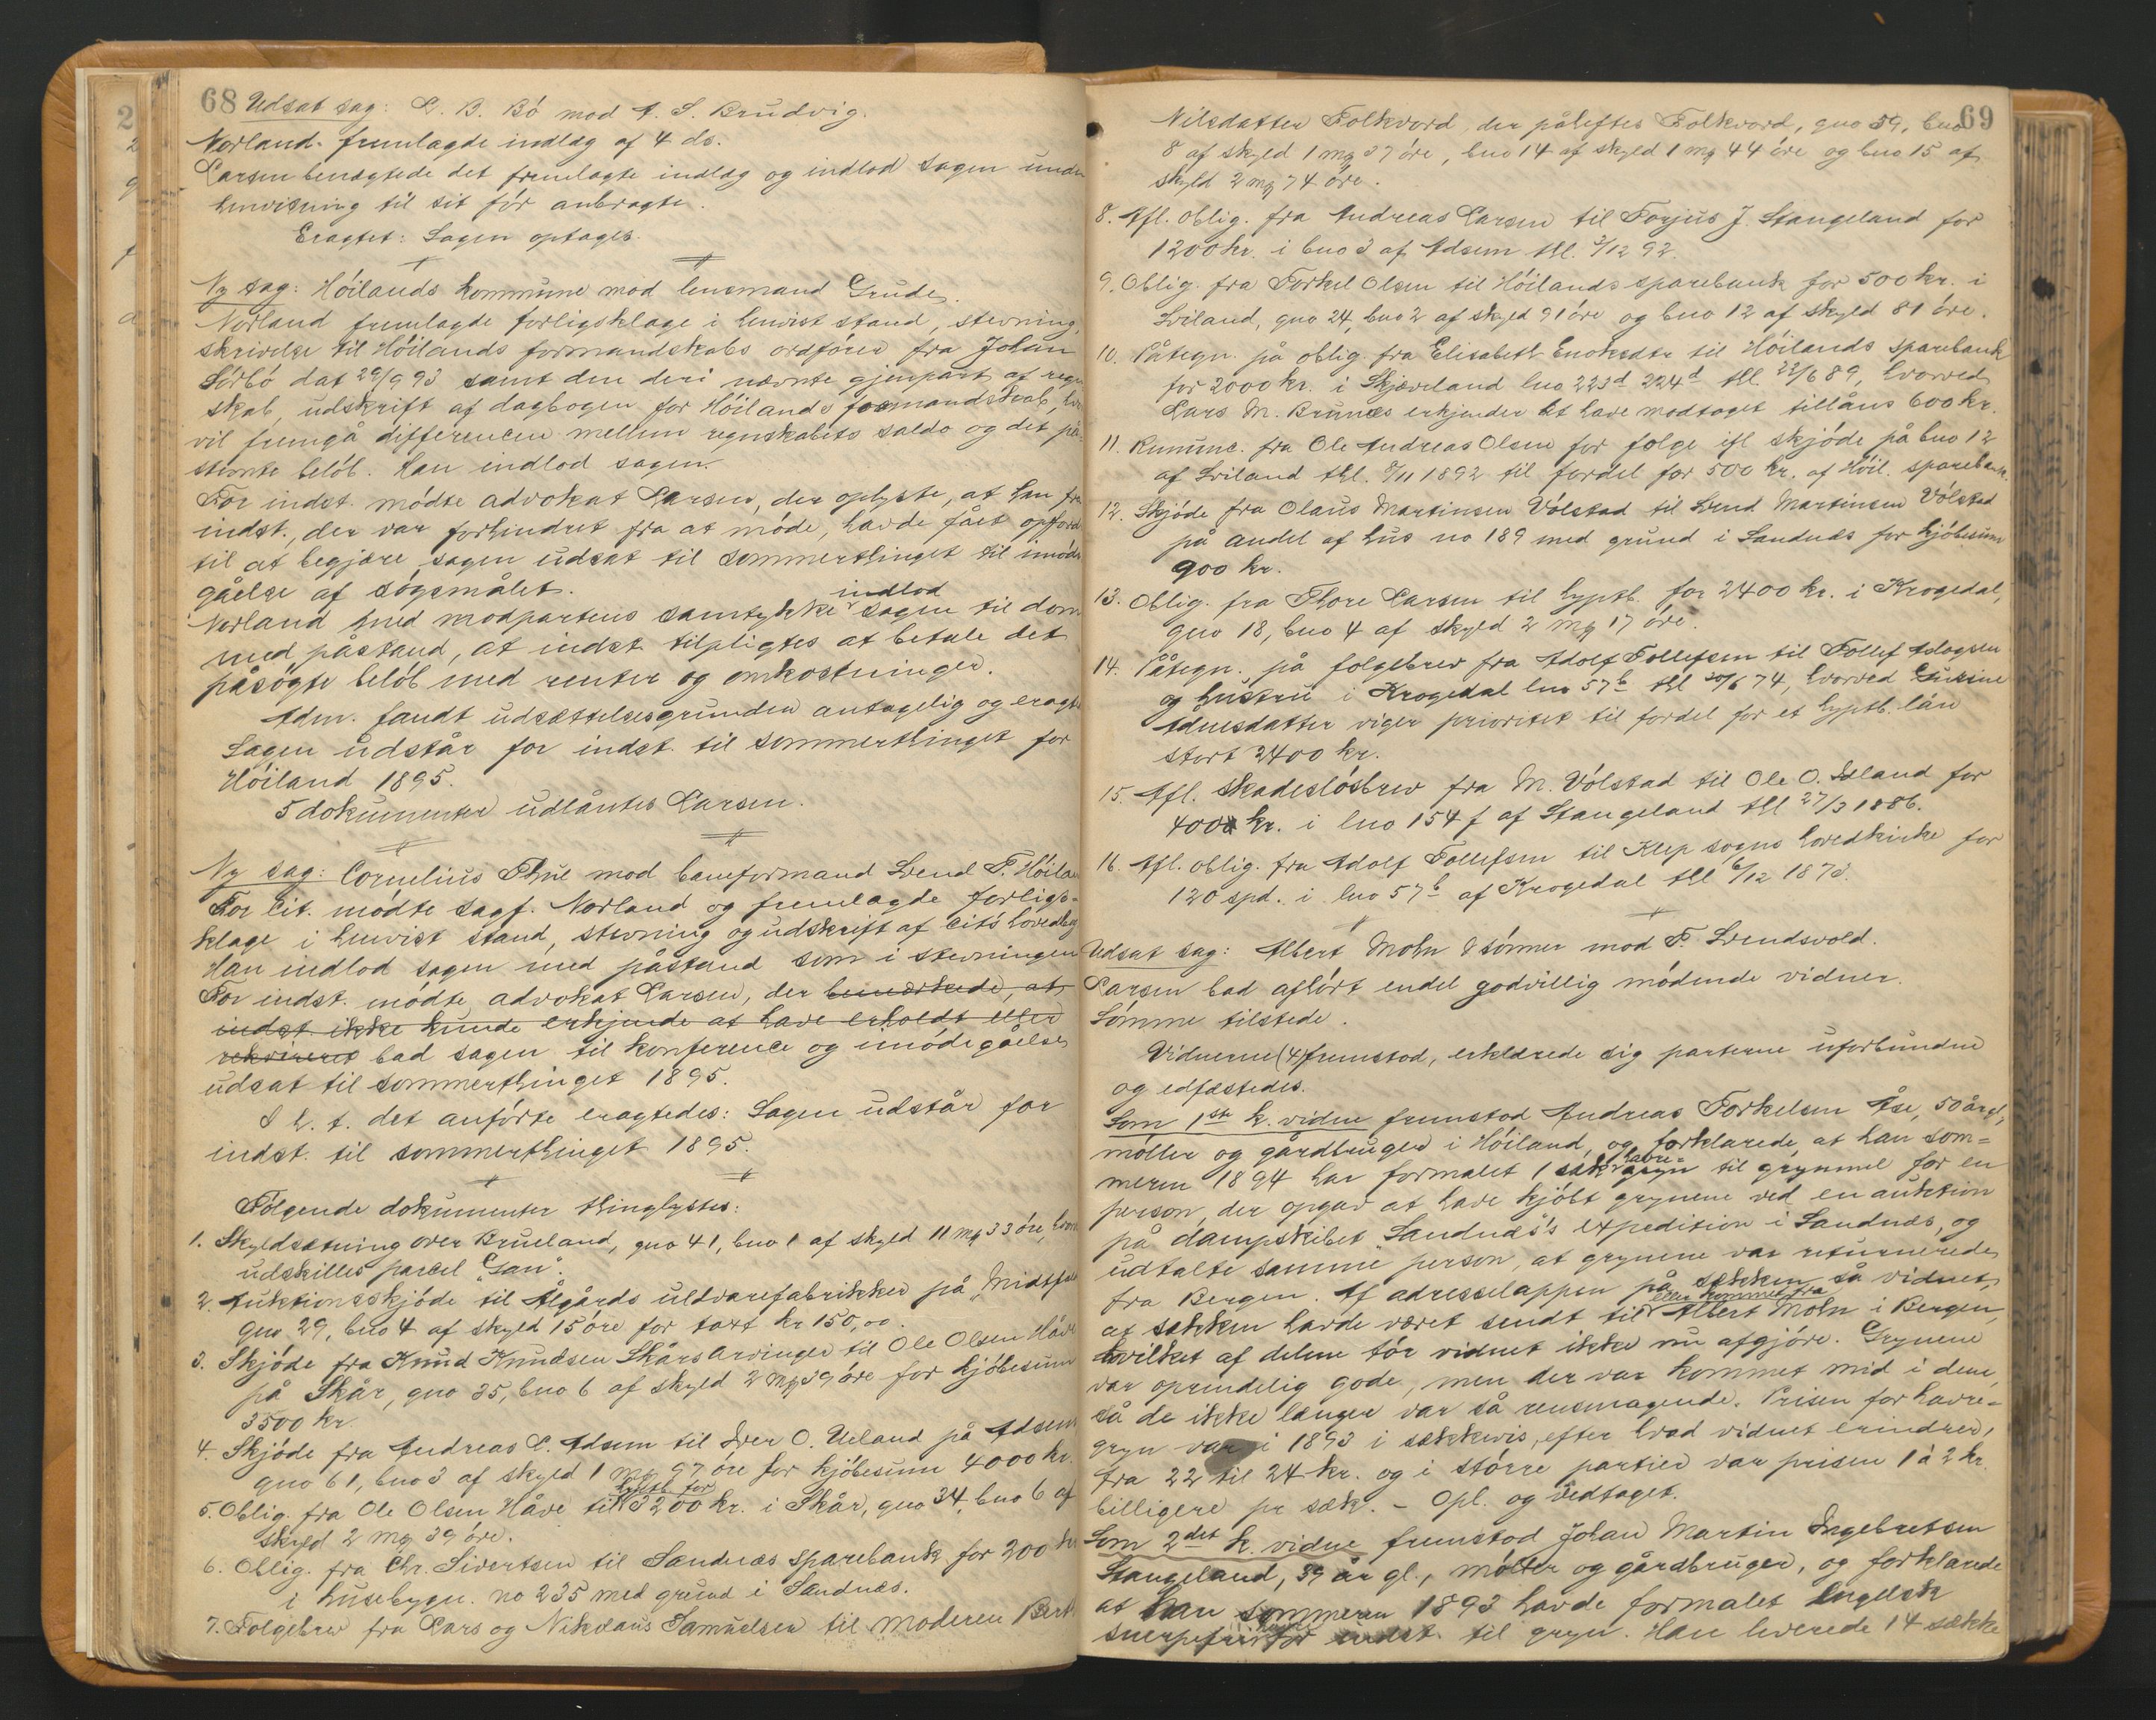 68 Udsat sag: L. B. Bö mod A. S. Brudvig.
Norland fremlagde indlæg af 4 ds.
Larsen benægtede det fremlagte indlæg og indlod sagen under
henvisning til sit för anbragte.
Eragtet: Sagen optages.
Ny sag: Höilands kommune mod lensmand Grude.
Norland fremlagde forligsklage i henvist stand, stevning,
skrivelse til Höilands formandskabs ordförer fra Johan
Sörbö dat 29/9 93 samt den deri nævnte gjenpart af regn
skab, udskrift af dagbogen for Höilands formandskab, hvo
vil fremgå differencen mellem regnskabets saldo og det på-
stevnte belöb. Han indlod sagen.
For indst. mödte advokat Larsen, der oplyste, at han fra
indst., der var forhindret fra at möde, havde fået opford
til at begjære sagen udsat til sommerthinget til imöde
gåelse af sögsmålet.
Norland med modpartens samtykke indlod sagen til dom
med påstand, at indst. tilpligtes at betale det
påsögte belöb med renter og omkostninger.
Adm. fandt udsættelsesgrunden antagelig og eragte
Sagen udstår for indst. til sommerthinget for
Höiland 1895.
5 dokumenter udlåntes Larsen.
Ny sag: Cornelius Thue mod baneformand Svend T. Höilan
For cit. mödte sagf. Norland og fremlagde forligs-
klage i henvist stand, stevning og udskrift af cits hovedbog
Han indlod sagen med påstand som i stevningen
For indst. mödte advokat Larsen, der bemærkede, at
indst. ikke kunde erkjende at have erholdt eller
rekvireret bad sagen til konference og imödegåelse
udsat til sommerthinget 1895.
I h. t. det anförte eragtedes: Sagen udstår for
indst. til sommerthinget 1895.
Fölgende dokumenter thinglystes:
1. Skyldsætning over Brueland, gno 41, bno 1 af skyld 11 mq 33 öre, hvor
udskilles parcel "Gan".
2. Auktionsskjöde til Ålgårds uldvarefabrikker på "Midtf
gno 29, bno 4 af skyld 15 öre for taxt kr 150,00.
3. Skjöde fra Knud Knudsen Skårs arvinger til Ole Olsen Håve
på Skår, gno 35, bno 6 af skyld 2 mq 39 öre for kjöbesum
3500 kr.
4. Skjöde fra Andreas L. Adsem til Iver O. Ueland på Adsem
gno 61, bno 3 af skyld 1 mq 97 öre for kjöbesum 4000 kr.
5. Oblig. fra Ole Olsen Håve til hyptb. for 3200 kr. i Skår, gno 34, bno 6 af
skyld 2 mq 39 öre.
6. Oblig. fra Chr. Sivertsen til Sandnæs sparebank for 200 kr
i husebygn. no 235 med grund i Sandnæs.
7. Folgebrev fra Lars og Nikolaus Samuelsen til moderen Bert
69
Nilsdatter Folkvord, der påheftes Folkvord, gno 59, bno
8 af skyld 1 mq 37 öre, bno 14 af skyld 1 mq 44 öre og bno 15 af
skyld 2 mq 74 öre.
8. Afl. oblig. fra Andreas Larsen til Torjus J. Stangeland for
1200 kr. i bno 3 af Adsem thl. 3/12 92.
9. Oblig. fra Torkel Olsen til Höilands sparebank for 500 kr. i
Sviland, gno 24, bno 2 af skyld 91 öre og bno 12 af skyld 81 öre.
10. Påtegn. på oblig. fra Elisabeth Enoksdtr til Höilands sparebank
for 2000 kr. i Skjæveland lno 223d 224d thl. 22/6 89, hvorved
Lars M. Brunæs erkjender at have modtaget tillåns 600 kr.
11. Renunc. fra Ole Andreas Olsen for folge ifl skjöde på bno 12
af Sviland thl. 8/11 1892 til fordel for 500 kr. af Höil. sparebank.
12. Skjöde fra Olaus Martinsen Völstad til Svend Martinsen Völstad
på andel af hus no 189 med grund i Sandnæs for kjöbesum
900 kr.
13. Oblig. fra Thore Larsen til hyptb. for 2400 kr. i Krogedal,
gno 18, bno 4 af skyld 2 mq 17 öre.
14. Påtegn. på folgebrev fra Adolf Tollefsen til Tollef
og hustru i Krogedal lno 57b thl 30/6 74, hvorved Gurine
Adnesdatter viger prioritet til fordel for et hyptb. lån
stort 2400 kr.
15. Afl. skadeslösbrev fra M. Völstad til Ole O. Island for
400 kr. i lno 154 f af Stangeland thl 27/3 1886.
16. Afl. oblig. fra Adolf Tollefsen til Klep sogns hovedkirke for
120 spd. i lno 57b af Krogedal thl 6/12 1873.
Udsat sag: Albert Mohn & sönner mod T. Svendsvold.
Larsen bad afhört endel godvillig mödende vidner.
Sömme tilstede.
Vidnerne (4) fremstod, erklærede sig parterne uforbundne
og edfæstedes.
Som 1ste k. vidne fremstod Andreas Torkelsen Åse, 50 år gl,
möller og gårdbruger i Höiland, og forklarede, at han som-
meren 1894 har formalet 1 sæk havre- gryn til grynmel for en
person, der opgav at have kjöbt grynene ved en auktion
på dampskibet "Sandnæs"s expedition i Sandnæs, og
udtalte samme person, at grynene var returnerede
fra Bergen. Af adresselappen på sækken så vidnet,
at sækken havde været sendt til eller kommet fra Albert Mohn i Bergen,
hvilket af delene tör vidnet ikke nu afgjöre. Grynene
var oprindelig gode, men der var kommet mid i dem,
så de ikke længer var så rensmagende. Prisen for havre-
gryn var i 1893 i sækkevis, efter hvad vidnet erindrer,
fra 22 til 24 kr. og i större partier var prisen 1 à 2 kr.
billigere pr sæk. - Opl. og vedtaget.
Som 2det k. vidne fremstod Johan Martin Ingebretsen
Stangeland, 39 år gl., möller og gårdbruger, og forklarede
at han sommeren 1893 havde formalet engelsk
indst. til gryn. Han leverede 14 sække